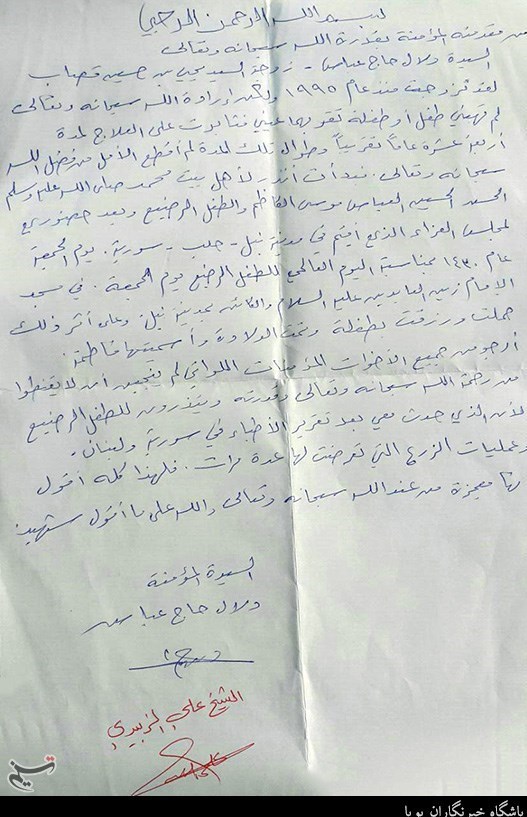 بسم الله الرحمن الرحيم
من مقدمته المؤمنة بقدرة الله سبحانه وتعالى
السيدة دلال حاج عباس - زوجة السيد يحيى بن حسين قصاب
لقد تزوجت منذ عام ١٩٩٥ ولكن إرادة الله سبحانه وتعالى
لم تهبني طفل أو طفلة تقر بها عيني فثابرت على العلاج لمدة
أربعة عشرة عاماً تقريباً وطوال تلك المدة لم أقطع الأمل من فضل الله
سبحانه وتعالى. فبدأت أنذر لأهل بيت محمد صلى الله عليه وسلم
الحسين العباس موسى الكاظم والطفل الرضيع وبعد حضوري
لمجلس العزاء الذي أقيم في مدينة نبل - حلب - سورية. يوم الجمعة
عام ١٤٣٠ بمناسبة اليوم العالمي للطفل الرضيع يوم الجمعة. في مسجد
الإمام زين العابدين عليه السلام والكائن بمدينة نبل. وعلى أثر ذلك
حملت ورزقت بطفلة وتمت الولادة وأسميتها فاطمة.
أرجو من جميع الأخوات المؤمنات اللواتي لم ينجبن أن لا يقنطوا
من رحمة الله سبحانه وتعالى وقدرته وينذرون للطفل الرضيع
لأن الذي حدث معي بعد تقرير الأطباء في سورية ولبنان.
وعمليات الزرع التي تعرضت لها عدة مرات. فلهذا كله أقول
أنها معجزة من عند الله سبحانه وتعالى والله على ما أقول شهيد
السيدة المؤمنة
دلال حاج عباس
الشيخ علي الزبيدي
تسنیم
باشگاه خبرنگاران پویا